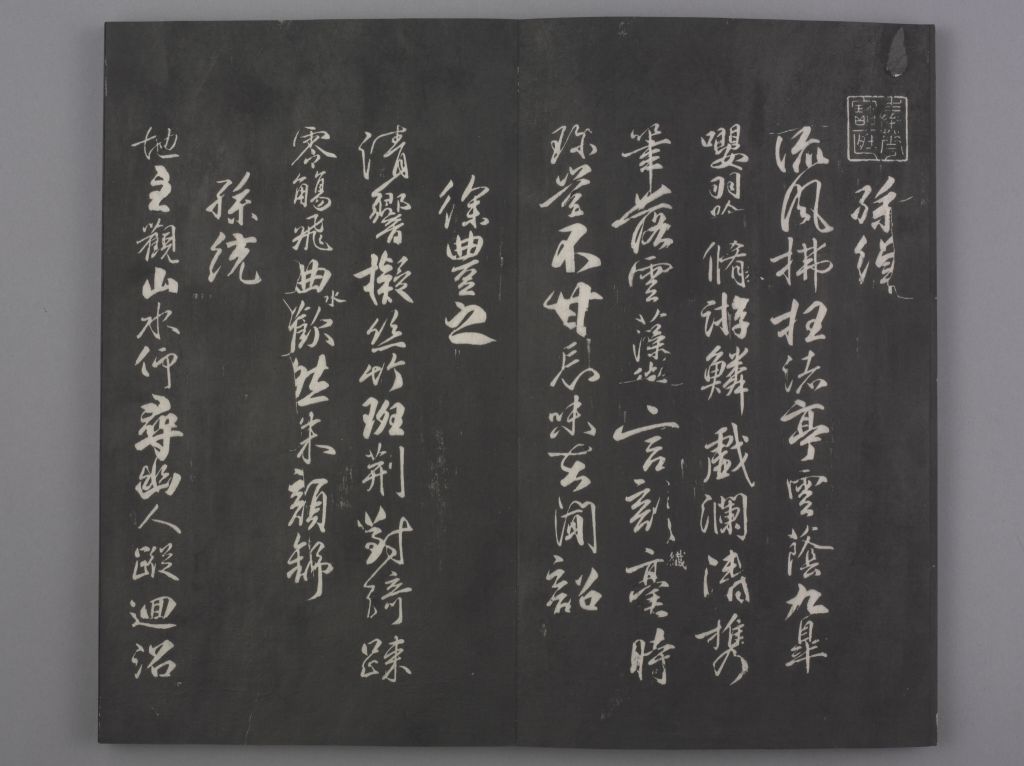 孫綽
流風拂枉渚亭雲蔭九皐
嚶羽吟脩游鱗戲瀾濤攜
筆落雲藻微言剖纖毫時
珍豈不甘忘味在聞韶
徐豐之
清響擬絲竹班荊對綺踈
零觴飛曲水歡然朱顏舒
孫統
地主觀山水仰尋幽人蹤迴沼